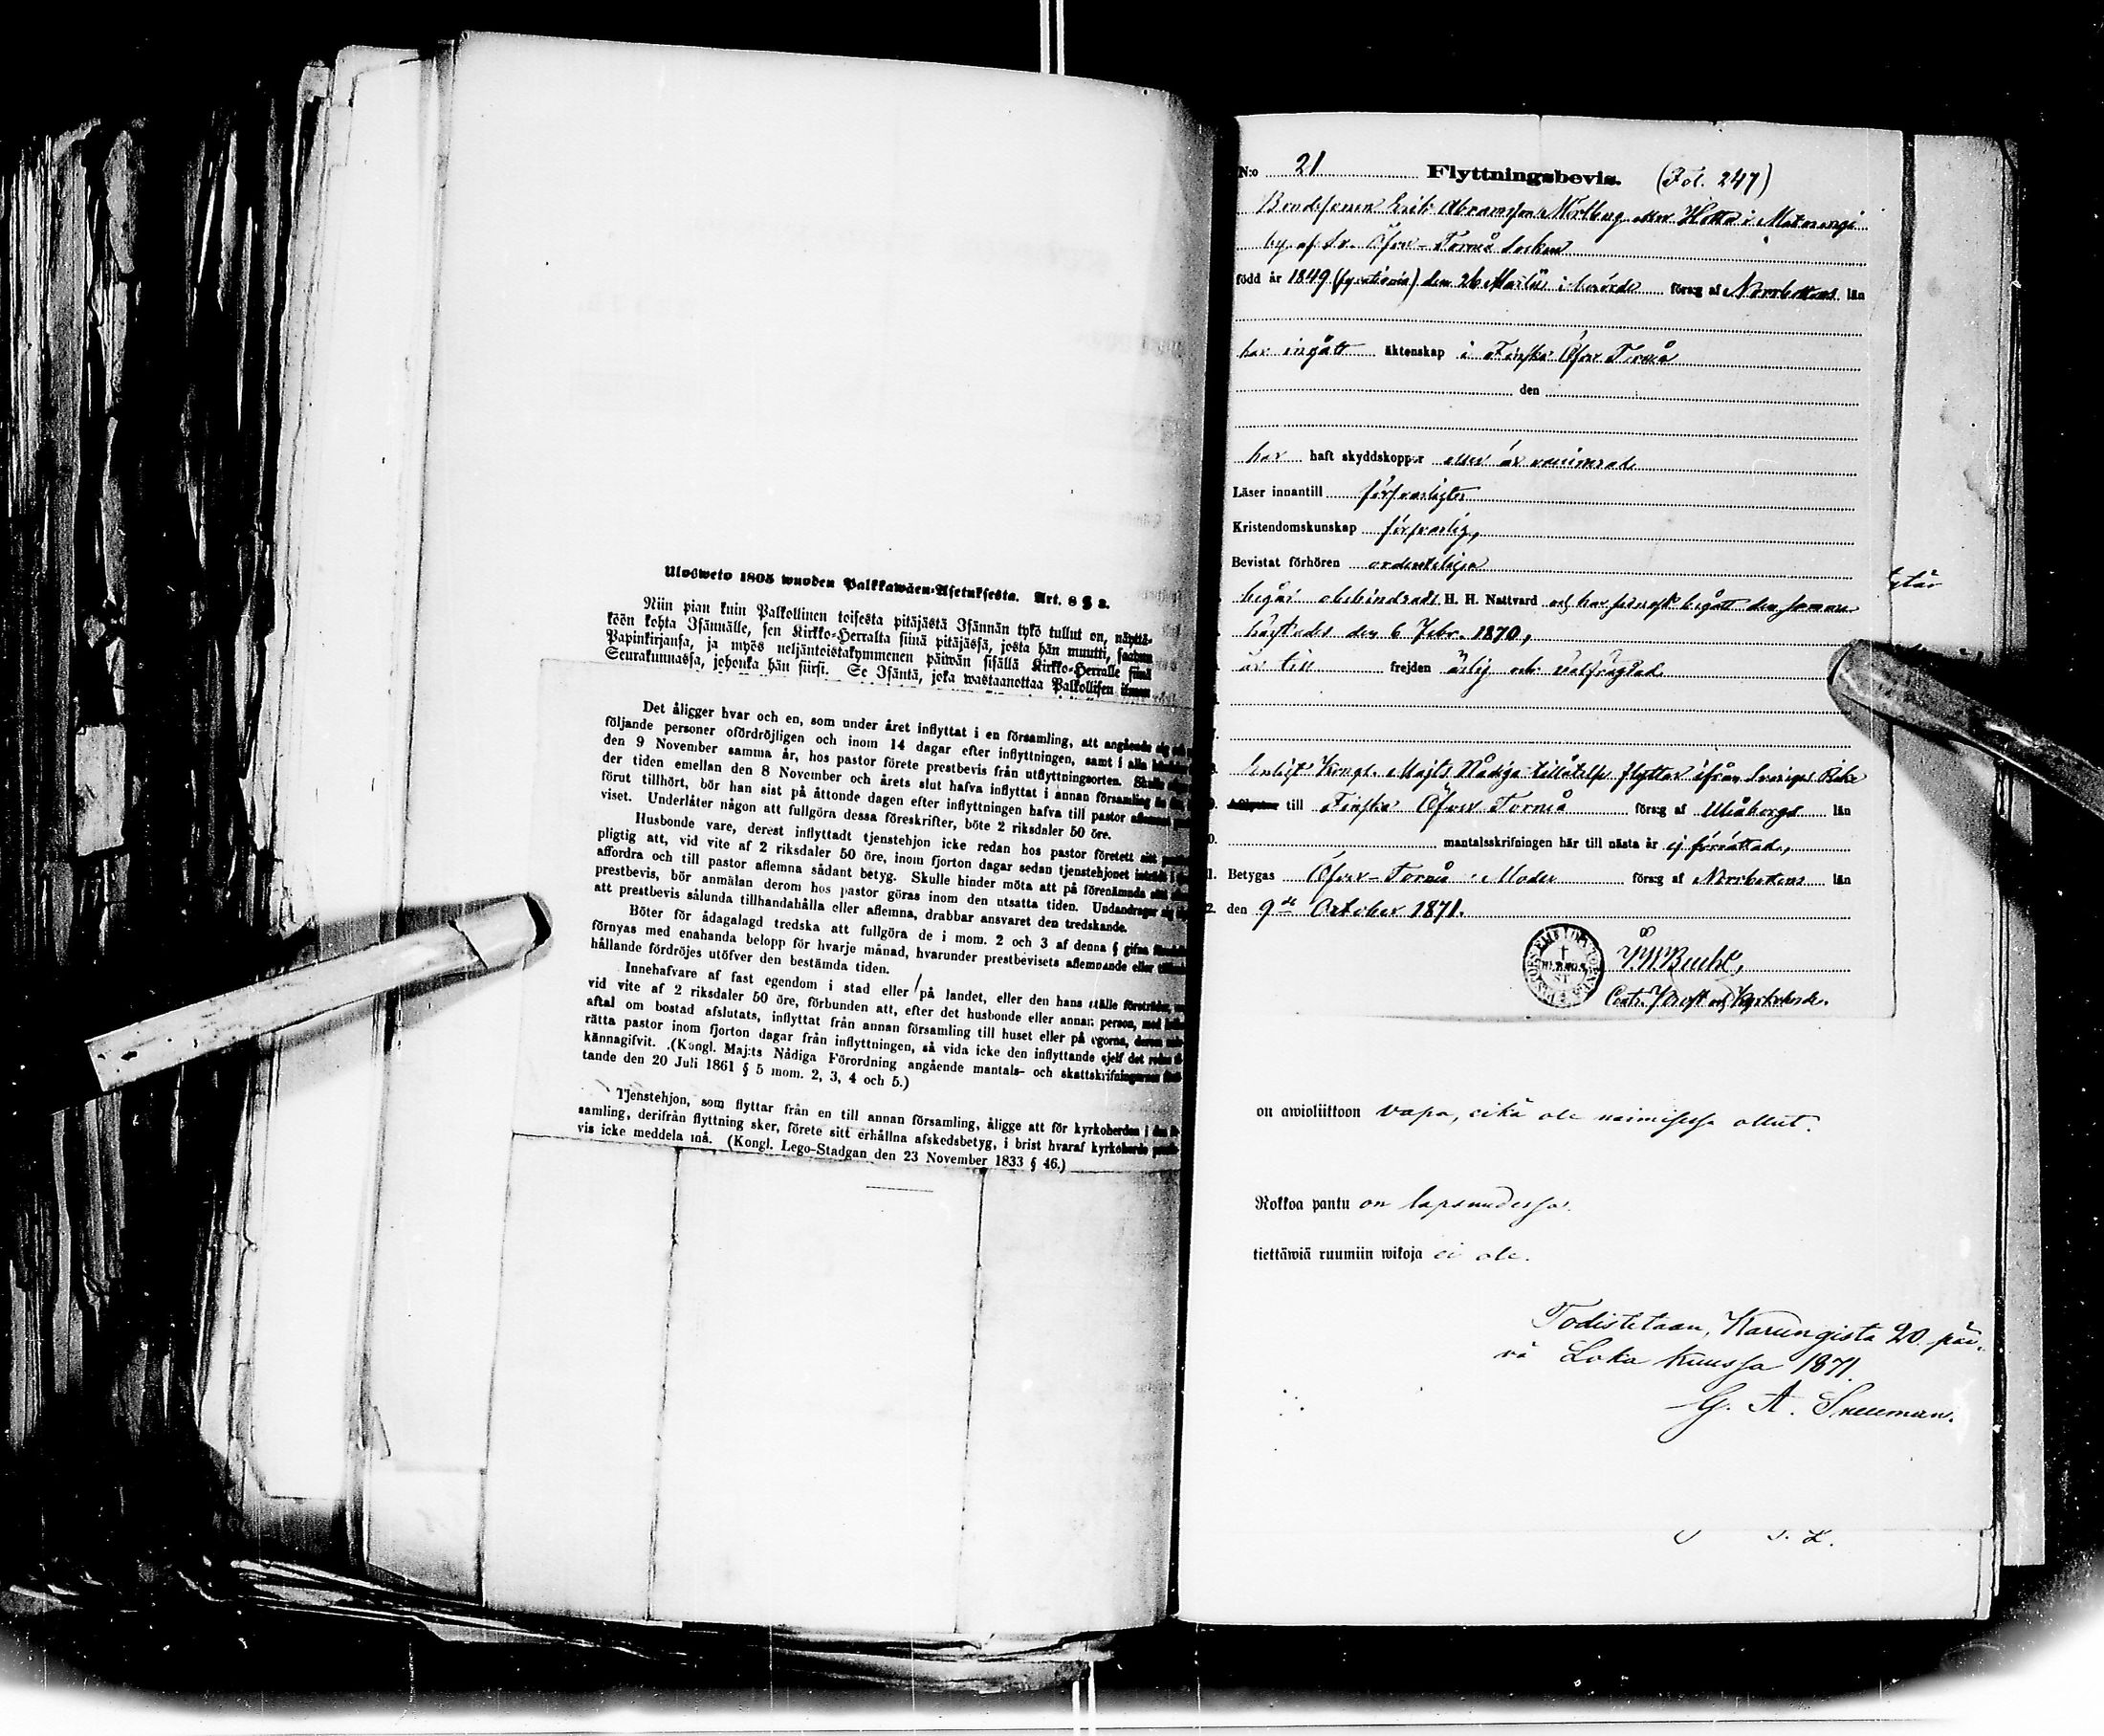 Ulosweto 1805 wuoden Palkkawäen-Asetuksesta. Art. 8 § 2.
Niin pian kuin Palkollinen toisesta pitäjästä Isännän tykö tullut on, näyttä-
köön kohta Isännälle, sen Kirkko-Herralta siinä pitäjässä, josta hän muutti, saatun
Papinkirjansa, ja myös neljäntoistakymmenen päiwän sisällä Kirkko-Herralle siinä
Seurakunnassa, johonka hän siirsi. Se Isäntä, joka wastaanottaa Palkollisen ilman
Det åligger hvar och en, som under året inflyttat i en församling, att angående sig och
följande personer ofördröjligen och inom 14 dagar efter inflyttningen, samt i alla
den 9 November samma år, hos pastor förete prestbevis från utflyttningsorten. Skulle
der tiden emellan den 8 November och årets slut hafva inflyttat i annan församling
förut tillhört, bör han sist på åttonde dagen efter inflyttningen hafva till pastor
viset. Underlåter någon att fullgöra dessa föreskrifter, böte 2 riksdaler 50 öre.
Husbonde vare, derest inflyttadt tjenstehjon icke redan hos pastor företett sitt
pligtig att, vid vite af 2 riksdaler 50 öre, inom fjorton dagar sedan tjenstehjonet
affordra och till pastor aflemna sådant betyg. Skulle hinder möta att på förenämnda sätt
prestbevis, bör anmälan derom hos pastor göras inom den utsatta tiden. Undandrager sig
att prestbevis sålunda tillhandahålla eller aflemna, drabbar ansvaret den tredskande.
Böter för ådagalagd tredska att fullgöra de i mom. 2 och 3 af denna § gifna
förnyas med enahanda belopp för hvarje månad, hvarunder prestbevisets aflemnande eller
hållande fördröjes utöfver den bestämda tiden.
Innehafvare af fast egendom i stad eller på landet, eller den hans ställe företräder,
vid vite af 2 riksdaler 50 öre, förbunden att, efter det husbonde eller annan person, med
aftal om bostad afslutats, inflyttat från annan församling till huset eller på egorna, derom
rätta pastor inom fjorton dagar från inflyttningen, så vida icke den inflyttande sjelf det redan
kännagifvit. (Kongl. Maj:ts Nådiga Förordning angående mantals- och skattskrifningarnes
tande den 20 Juli 1861 § 5 mom. 2, 3, 4 och 5.)
Tjenstehjon, som flyttar från en till annan församling, åligge att för kyrkoherden i den
samling, derifrån flyttning sker, förete sitt erhållna afskedsbetyg, i brist hvaraf kyrkoherde
vis icke meddela må. (Kongl. Lego-Stadgan den 23 November 1833 § 46.)
N:o 21 Flyttningsbevis. (Fol. 247)
Bondesonen Erik Abramsson Hotta i Matarengi
by af Sv. Öfver-Torneå Socken
född år 1849 den 26 Martii i förs:g af Norrbottens län
har ingått äktenskap i Finska Öfver Torneå
den
har haft skyddskoppor eller är vaccinerad
Läser innantill försvarligen
Kristendomskunskap försvarlig,
Bevistat förhören ordentligen
begår obehindradt H. H. Nattvard och har senast begått den samma
härstädes den 6 Febr. 1870,
är till frejden ärlig och välfrägdad
Enligt Kongl. Majts Nådiga tillåtelse flyttar ifrån Sveriges Rike
till Finska Öfver Torneå förs:g af Uleåborgs län
mantalsskrifningen här till nästa år ej förrättad,
Betygas Öfver-Torneå Moder förs:g af Norrbottens län
den 9de October 1871.
on awioliittoon vapa, eikä ole naimisessa ollut.
Rokkoa pantu on lapsuudessa.
tiettäwiä ruumiin wikoja ei ole.
Todistetaan, Karungista 20 päi-
vä Loka kuussa 1871.
G. A. Snellman.